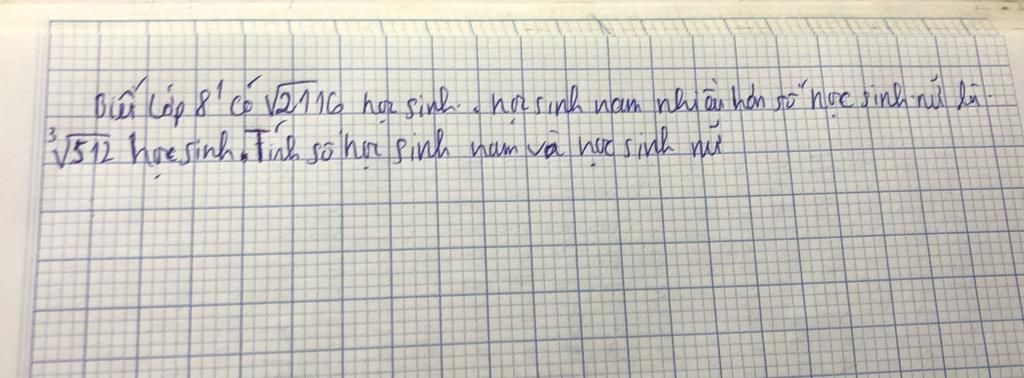 Biết lớp 8¹ có √2116 học sinh. học sinh nam nhiều hơn số học sinh nữ là
³√512 học sinh. Tính số học sinh nam và học sinh nữ